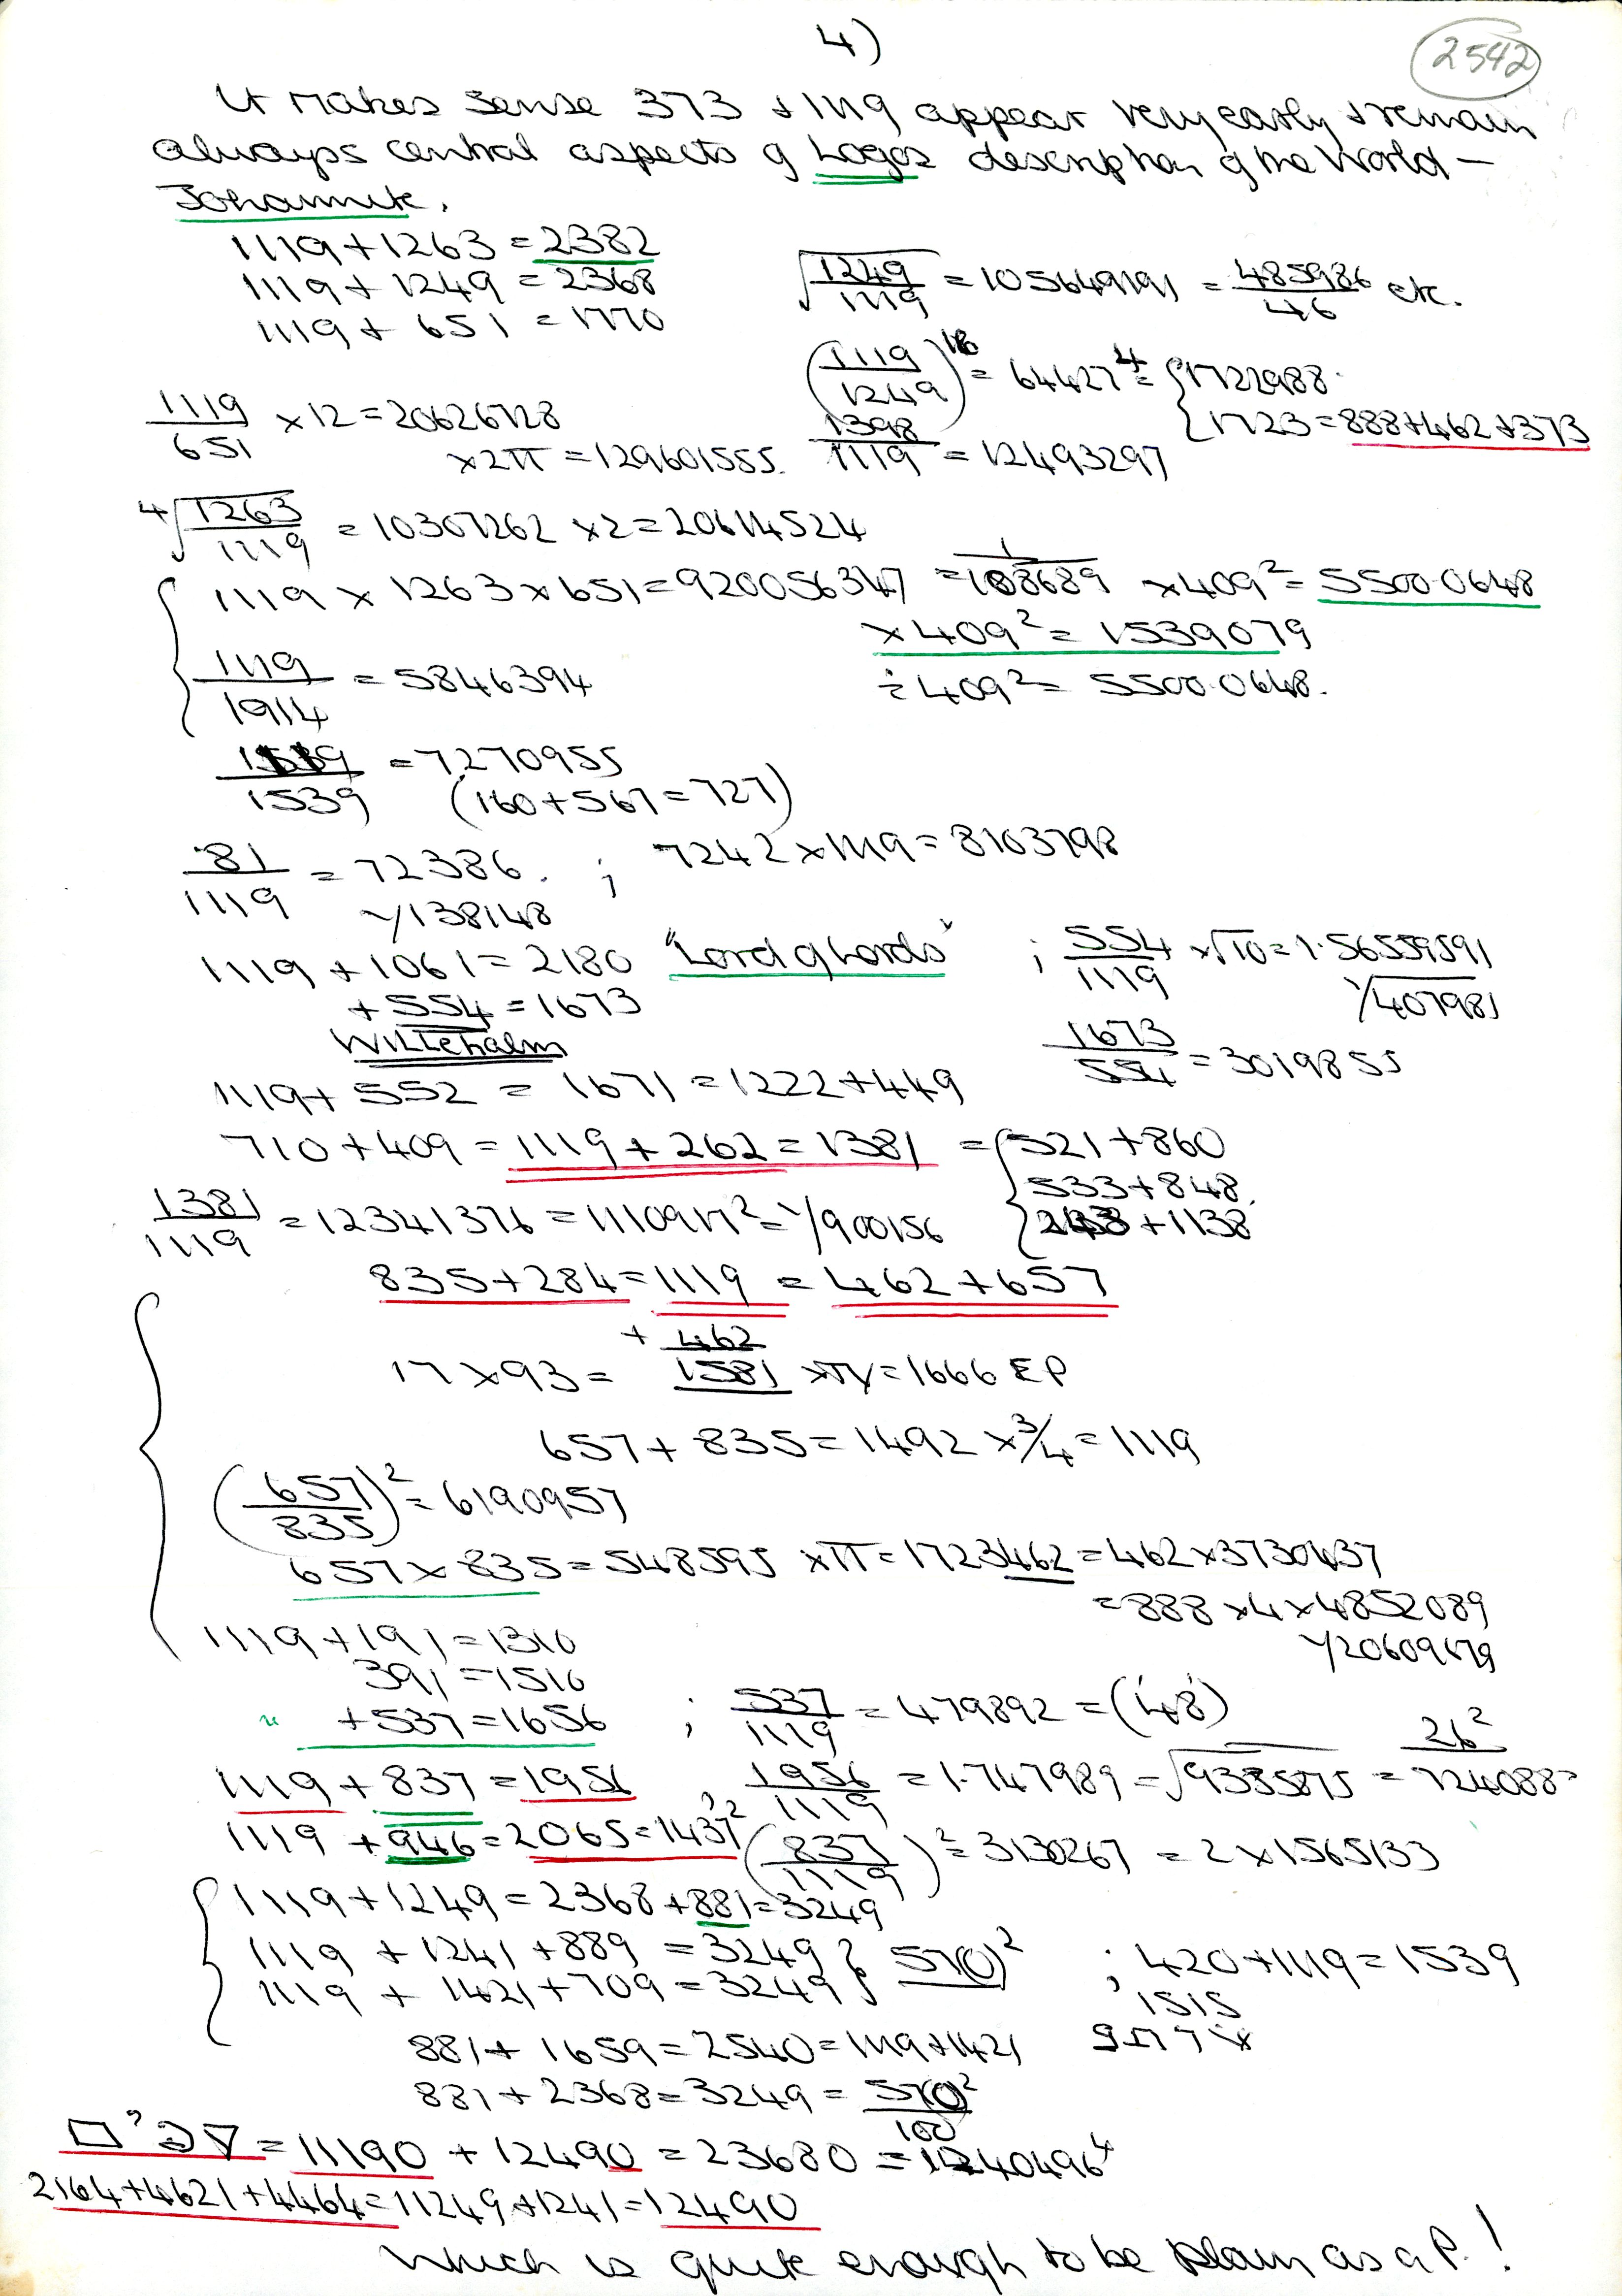 4)
2542
It makes sense 373 + 1119 appear very early & remain
always central aspects of Logos description of the World —
Johannite.
1119 + 1263 = 2382
1119 + 1249 = 2368
1119 + 651 = 1770
√(1249/1119) = 105649191 = 485986/46 etc.
(1119/1249)^16 = 64427^4 = {1722988
{1723 = 888+462+373
1119/651 × 12 = 20626728
×2π = 129601555.
1398/1119 = 12493297
4√(1263/1119) = 10307262 × 2 = 20614524
1119 × 1263 × 651 = 920056347 = 1/108689 × 409² = 5500.0648
× 409² = 1539079
÷ 409² = 5500.0648.
1119/1914 = 5846394
1119/1539 = 7270955
(160 + 567 = 727)
81/1119 = 72386. ; 7242 × 1119 = 8103798
1/138148
1119 + 1061 = 2180 "Lord of Lords" ; 554/1119 × √10 = 1.56559591
+ 554 = 1673
1/407981
Willehalm
1673/554 = 3019855
1119 + 552 = 1671 = 1222 + 449
710 + 409 = 1119 + 262 = 1381 = {521 + 860
533 + 848.
243 + 1138
1381/1119 = 12341376 = 1110917² = 1/900156
835 + 284 = 1119 = 462 + 657
+ 462
17 × 93 = 1581 × π/ = 1666 EP
657 + 835 = 1492 × 3/4 = 1119
(657/835)² = 6190957
657 × 835 = 548595 × π = 1723462 = 462 × 3730437
= 888 × 4 × 4852089
1/20609679
1119 + 191 = 1310
391 = 1510
" + 537 = 1656 ; 537/1119 = 479892 = (48)
1119 + 837 = 1956 , 1956/1119 = 1.747989 = √9335875 = 26²/724088
1119 + 946 = 2065 = 1437² (837/1119)² = 3130267 = 2 × 1.565133
1119 + 1249 = 2368 + 881 = 3249
1119 + 1241 + 889 = 3249 } 57(0)² ; 420 + 1119 = 1539
1119 + 1421 + 709 = 3249 }
1515
881 + 1659 = 2540 = 1119 + 1421
881 + 2368 = 3249 = 57(0)²/100
= 11190 + 12490 = 23680 = 1240496^4
2164 + 4621 + 4464 = 11249 + 1241 = 12490
Which is quite enough to be plain as a P. !